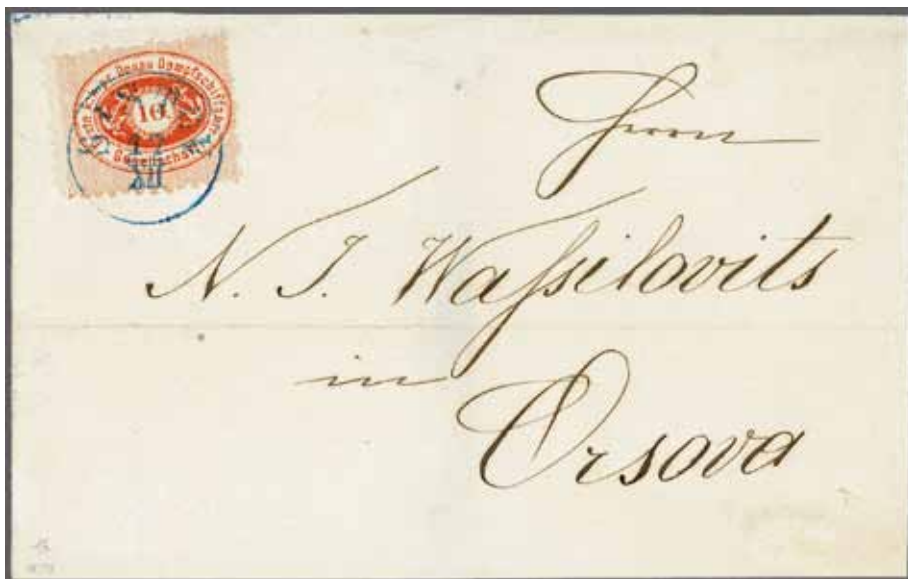 Donau Dampfschiffahrt
10
Gesellschaft
Herrn
N. J. Waſsilovits
in
Orsova